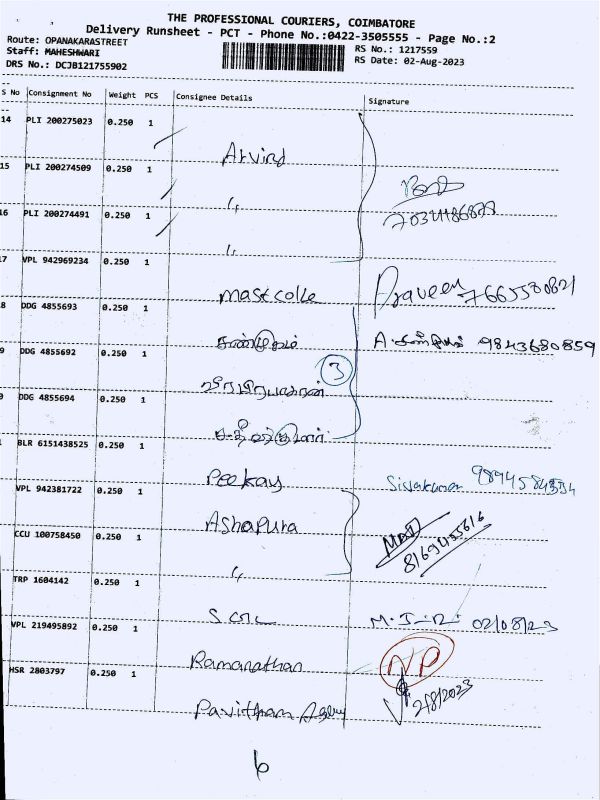 THE PROFESSIONAL COURIERS, COIMBATORE
Delivery Runsheet - PCT - Phone No.:0422-3505555 - Page No.:2
Route: OPANAKARASTREET
Staff: MAHESHWARI
DRS No.: DCJB121755902
RS No.: 1217559
RS Date: 02-Aug-2023
S No Consignment No Weight PCS Consignee Details Signature
14 PLI 200275023 0.250 1
Arvind
15 PLI 200274509 0.250 1
"
16 PLI 200274491 0.250 1
"
7 VPL 942969234 0.250 1
mastcolle Praveen 7665580821
8 DDG 4855693 0.250 1
சண்முகம் A. 9843680859
9 DDG 4855692 0.250 1
3
0 DDG 4855694 0.250 1
BLR 6151438525 0.250 1
Peekay Sivakumar 9894584334
VPL 942381722 0.250 1
Ashapura
8169455616
CCU 100758450 0.250 1
"
TRP 1604142 0.250 1
02/08/23
VPL 219495892 0.250 1
Ramanathan NP
HSR 2803797 0.250 1
2/8/2023
Pavithram Agency
6